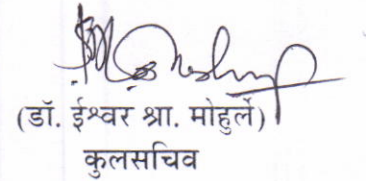 (डॉ. ईश्वर श्रा. मोहुर्ले)
कुलसचिव